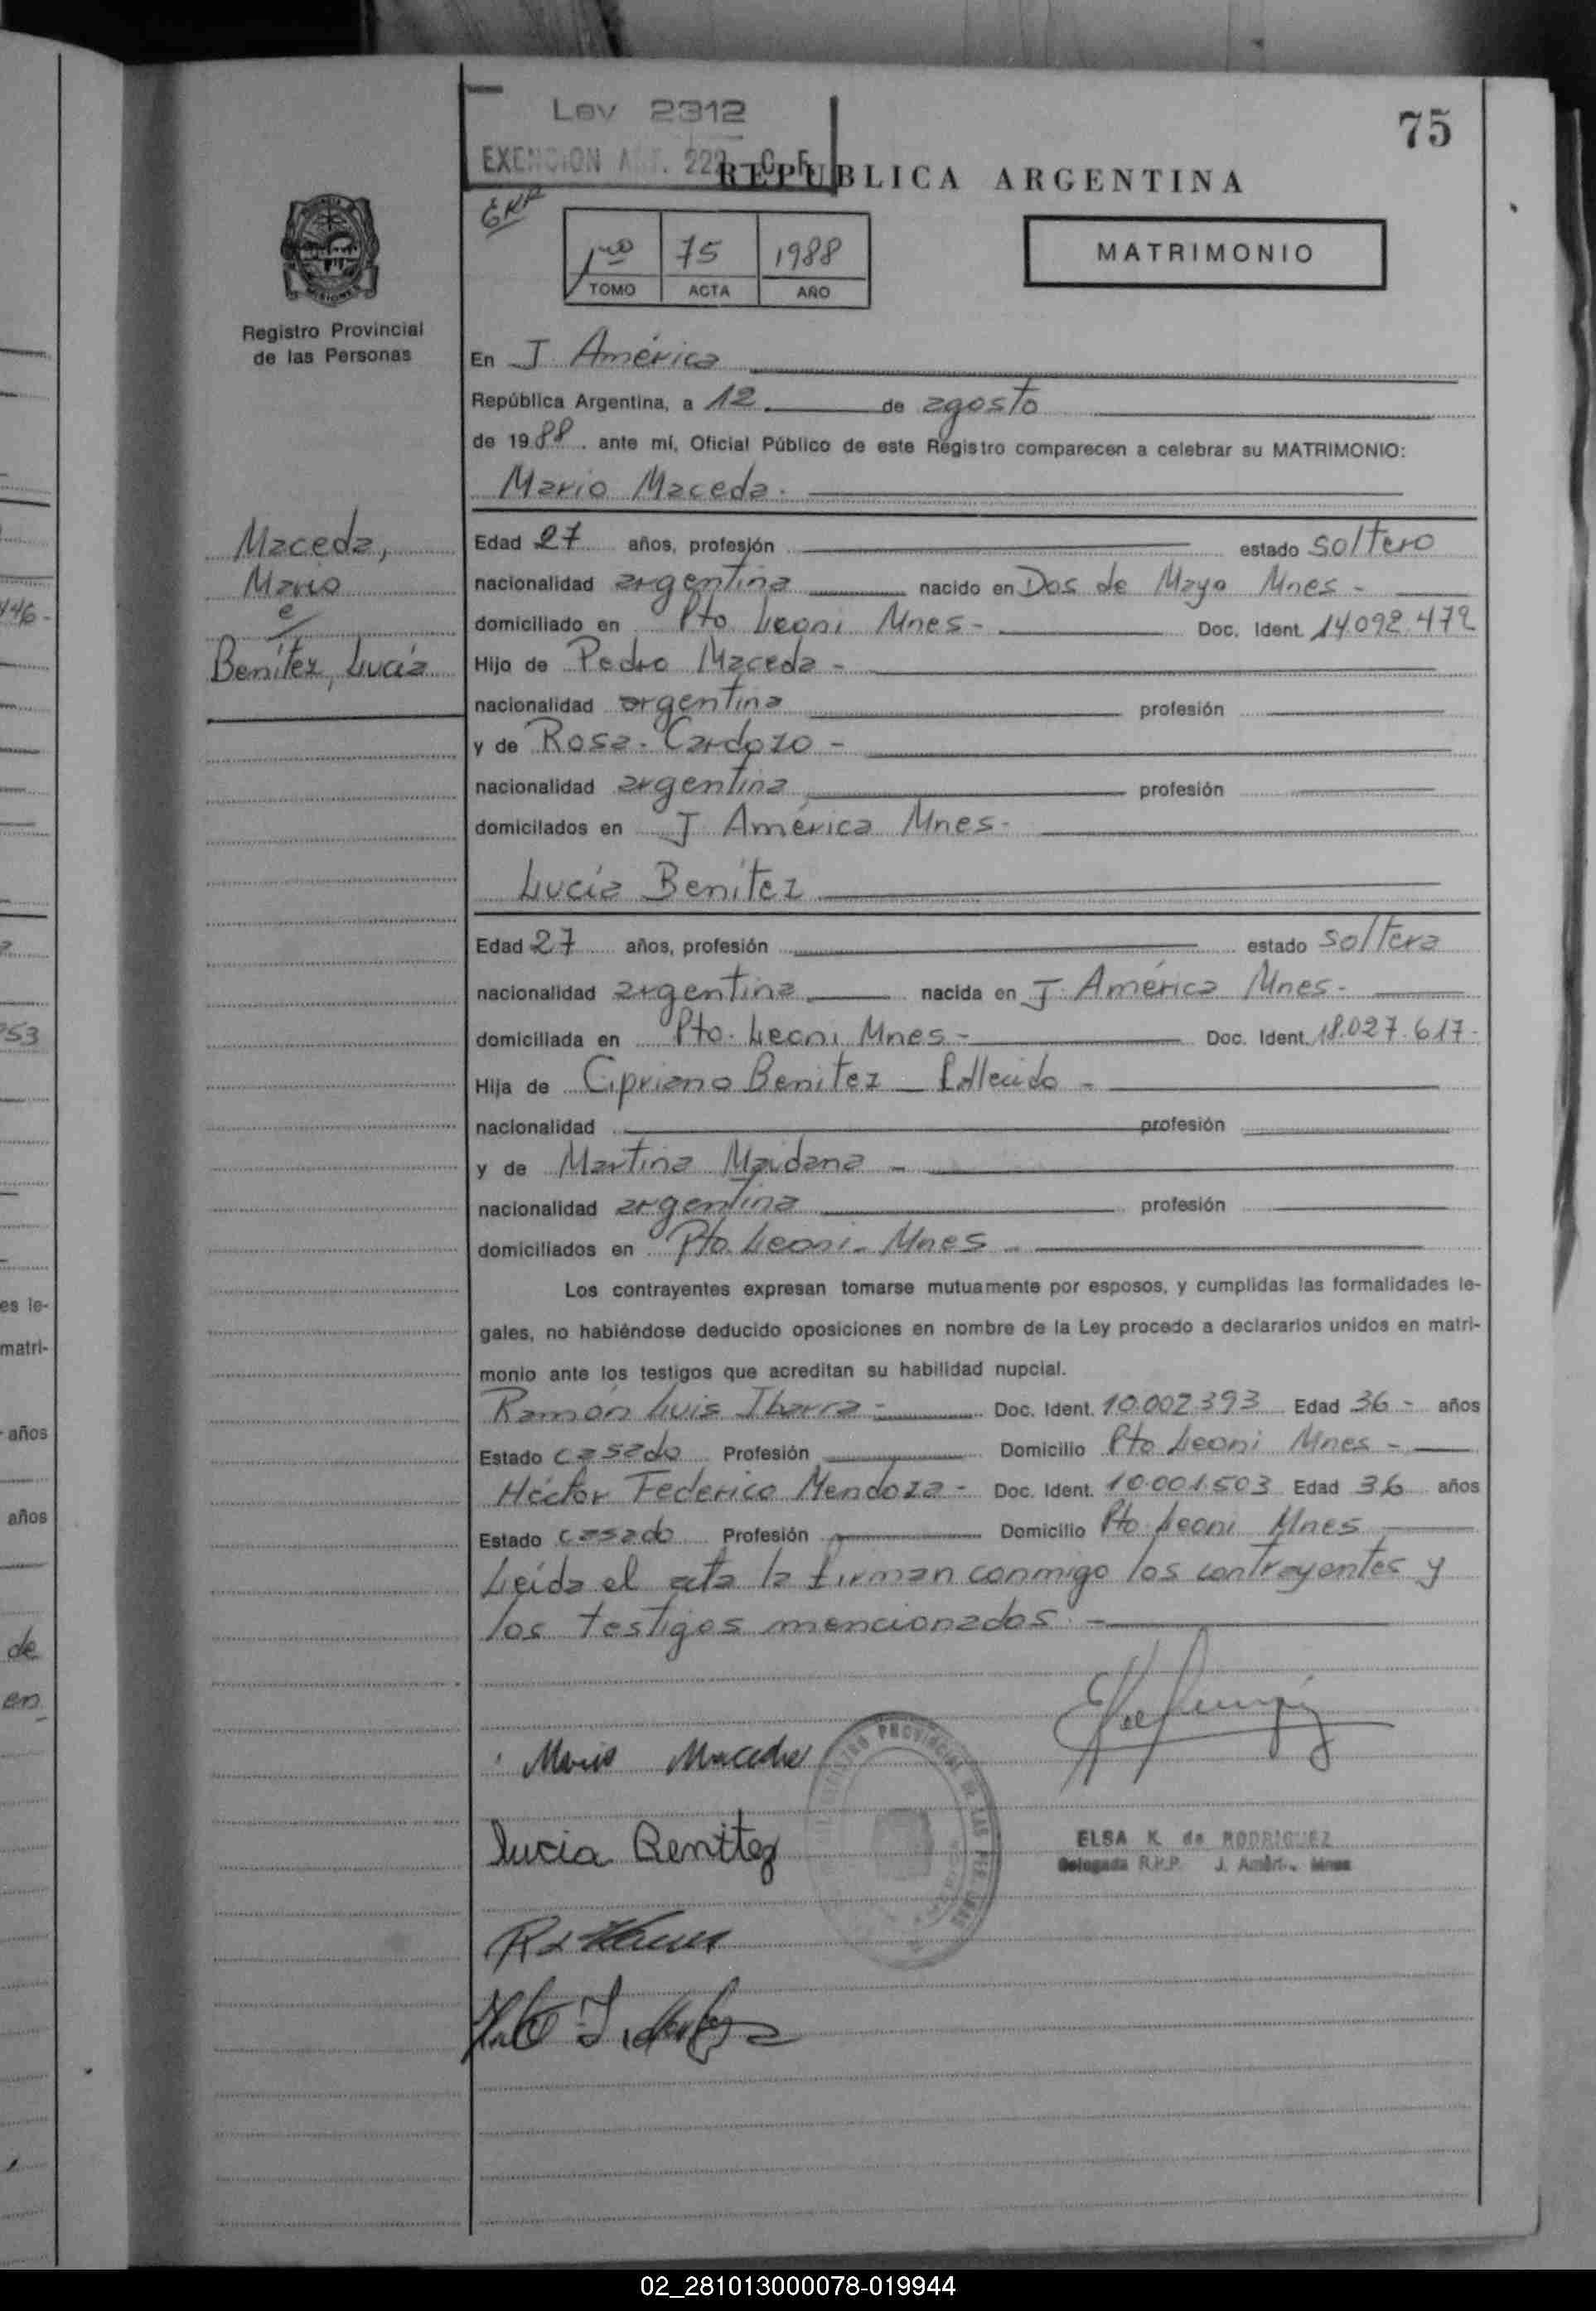 75
Ley 2312
EXENCION ART. 222 - C.F.
REPUBLICA ARGENTINA
1ro 75 1988
TOMO ACTA AÑO
MATRIMONIO
MISIONES
Registro Provincial
de las Personas
Maceda,
Mario
e/
Benítez, Lucía
En J. América
República Argentina, a 12 de agosto
de 1988. ante mí, Oficial Público de este Registro comparecen a celebrar su MATRIMONIO:
Mario Maceda.
Edad 27 años, profesión estado soltero
nacionalidad argentina nacido en Dos de Mayo Mnes -
domiciliado en Pto Leoni Mnes - Doc. Ident. 14.092.472
Hijo de Pedro Maceda -
nacionalidad argentina profesión
y de Rosa - Cardozo -
nacionalidad argentina profesión
domicilados en J América Mnes-
Lucía Benítez
Edad 27 años, profesión estado soltera
nacionalidad argentina nacida en J. América Mnes-
domiciliada en Pto. Leoni Mnes - Doc. Ident. 18.027.617-
Hija de Cipriano Benítez - Fallecido -
nacionalidad profesión
y de Martina Maidana -
nacionalidad argentina profesión
domiciliados en Pto. Leoni - Mnes -
Los contrayentes expresan tomarse mutuamente por esposos, y cumplidas las formalidades le-
gales, no habiéndose deducido oposiciones en nombre de la Ley procedo a declararlos unidos en matri-
monio ante los testigos que acreditan su habilidad nupcial.
Ramón Luis Ibarra - Doc. Ident. 10.002.393 Edad 36 - años
Estado casado Profesión Domicilio Pto Leoni Mnes -
Héctor Federico Mendoza - Doc. Ident. 10.001.503 Edad 36 años
Estado casado Profesión Domicilio Pto Leoni Mnes
Leída el acta la firman conmigo los contrayentes y
los testigos mencionados. -
Mario Maceda
Lucia Benitez
REGISTRO PROVINCIAL DE LAS PERSONAS
ELSA K. de RODRIGUEZ
Delegada R.P.P. J. Améri. Mnes
146-
953
es le-
matri-
años
años
de
en
02_281013000078-019944